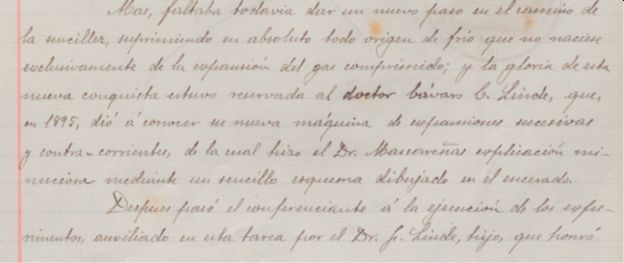 Mas, faltaba todavía dar un nuevo paso en el camino de
la sencillez, suprimiendo en absoluto todo origen de frío que no naciese
exclusivamente de la expansión del gas comprimido; y la gloria de esta
nueva conquista estuvo reservada al doctor bávaro C. Linde, que,
en 1895, dió á conocer su nueva máquina de expansiones sucesivas
y contra-corrientes, de la cual hizo el Dr. Mascareñas explicación mi-
nuciosa mediante un sencillo esquema dibujado en el encerado.
Despues pasó el conferenciante á la ejecución de los expe-
rimentos, auxiliado en esta tarea por el Dr. Linde, hijo, que honró